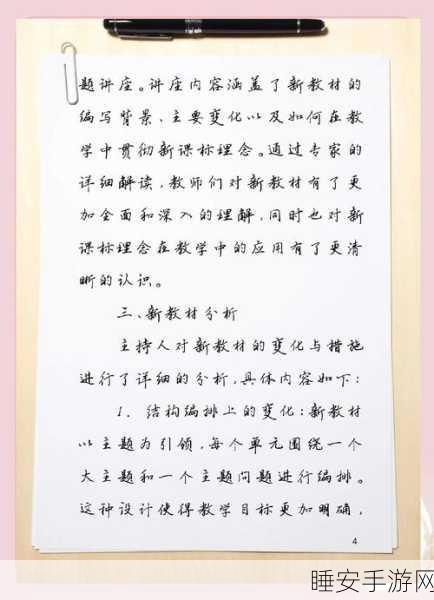 题讲座。讲座内容涵盖了新教材的
编写背景、主要变化以及如何在教
学中贯彻新课标理念。通过专家的
详细解读，教师们对新教材有了更
加全面和深入的理解，同时也对新
课标理念在教学中的应用有了更清
晰的认识。
三、新教材分析
主持人对新教材的变化与措施
进行了详细的分析，具体内容如下：
1. 结构编排上的变化：新教材
以主题为引领，每个单元围绕一个
大主题和一个主题问题进行编排。
这种设计使得教学目标更加明确，
4
睡安手游网